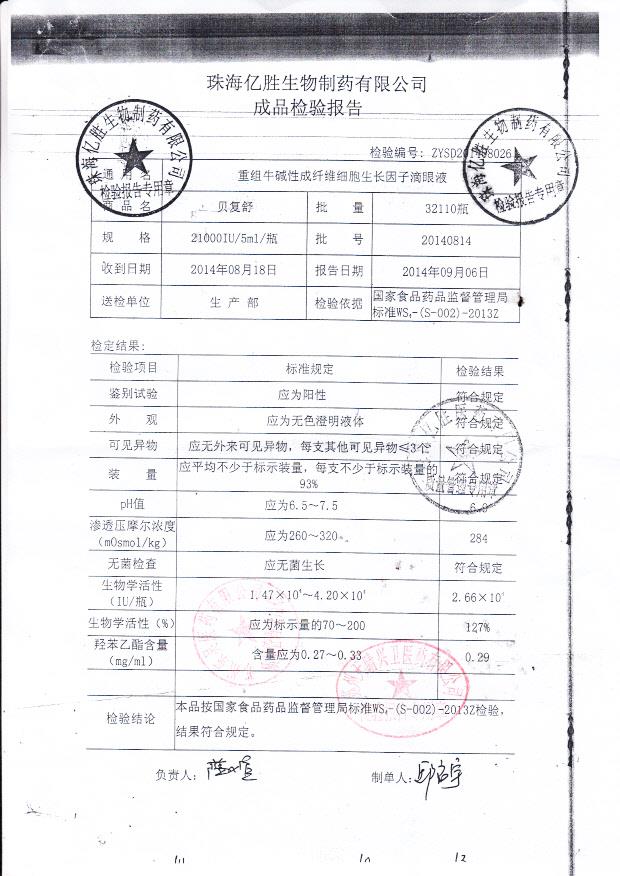 珠海亿胜生物制药有限公司
成品检验报告
检验编号: ZYSD201408026
通用名 重组牛碱性成纤维细胞生长因子滴眼液
商品名 贝复舒 批 量 32110瓶
规 格 21000IU/5ml/瓶 批 号 20140814
收到日期 2014年08月18日 报告日期 2014年09月06日
送检单位 生 产 部 检验依据 国家食品药品监督管理局
标准WS₄-(S-002)-2013Z
检定结果:
检验项目 标准规定 检验结果
鉴别试验 应为阳性 符合规定
外 观 应为无色澄明液体 符合规定
可见异物 应无外来可见异物，每支其他可见异物≤3个 符合规定
装 量 应平均不少于标示装量，每支不少于标示装量的
93% 符合规定
pH值 应为6.5～7.5 6.9
渗透压摩尔浓度
(mOsmol/kg) 应为260～320 284
无菌检查 应无菌生长 符合规定
生物学活性
(IU/瓶) 1.47×10⁴～4.20×10⁴ 2.66×10⁴
生物学活性(%) 应为标示量的70～200 127%
羟苯乙酯含量
(mg/ml) 含量应为0.27～0.33 0.29
检验结论 本品按国家食品药品监督管理局标准WS₄-(S-002)-2013Z检验，
结果符合规定。
负责人: 制单人:
珠海亿胜生物制药有限公司
检验报告专用章
珠海亿胜生物制药有限公司
检验报告专用章